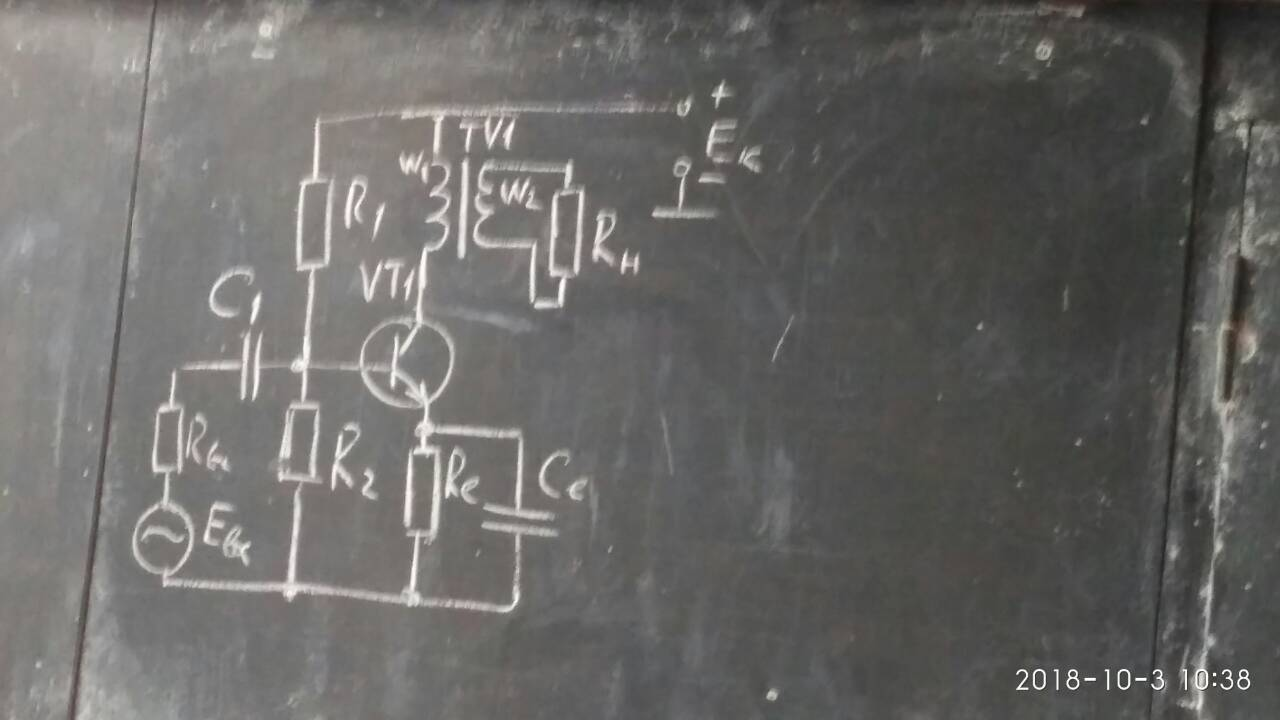 +
TV1
Eк
−
W₁
W₂
R₁
Rн
VT1
C₁
Rвх
R₂
Re
Ce
~
Eвх
2018-10-3 10:38